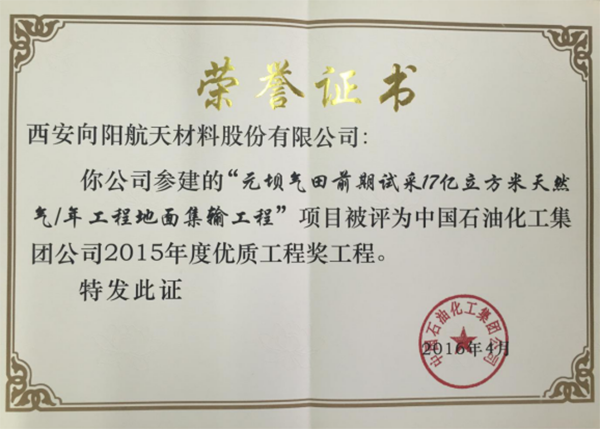 荣誉证书
西安向阳航天材料股份有限公司：
你公司参建的“元坝气田前期试采17亿立方米天然
气/年工程地面集输工程”项目被评为中国石油化工集
团公司2015年度优质工程奖工程。
特发此证
中国石油化工集团公司
2016年4月